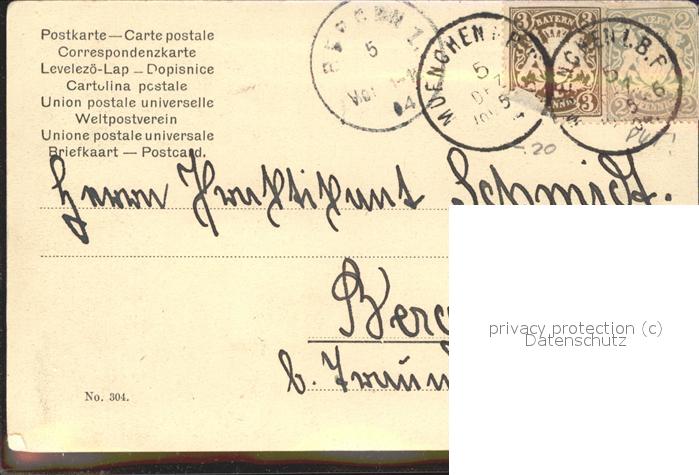 Postkarte — Carte postale
Correspondenzkarte
Levelező-Lap — Dopisnice
Cartolina postale
Union postale universelle
Weltpostverein
Unione postale universale
Briefkaart — Postcard.
BERGEN
5
04
MUENCHEN I.B.P.
5
MUENCHEN I.B.P.
5
3 BAYERN
3 PFENNIG 3
BAYERN 2
20
Herrn Praktikant Schmidt.
Berg
b. Traun
privacy protection (c)
Datenschutz
No. 304.